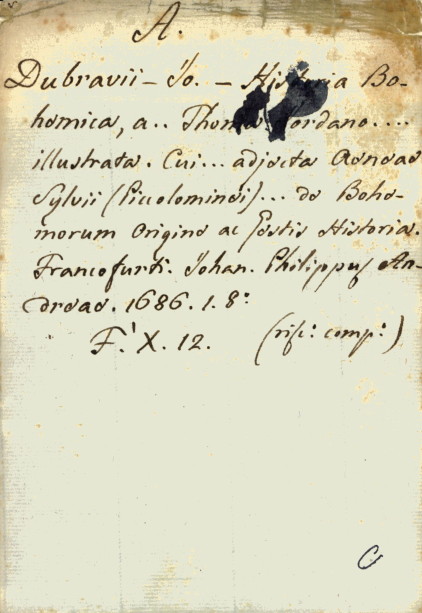 A.
Dubravii - Jo. - Historia Bo-
hemica, a.. Thoma Jordano....
illustrata. Cui... adjecta Aeneae
Sylvii (Piccolominei)... de Bohe-
morum Origine ac Gestis Historia.
Francofurti. Johan. Philippus An-
dreae. 1686. 1. 8:
F.' X. 12. (risc: comp:)
C